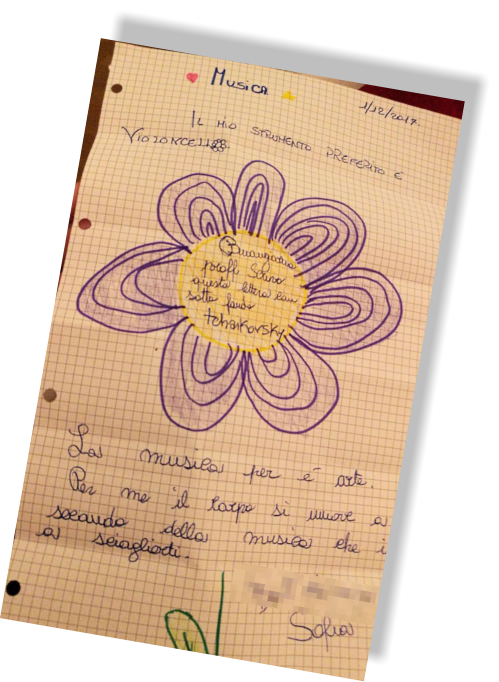 Musica
1/12/2017
Il mio strumento preferito è
Violoncello
Buongiorno
proff
questa lettera
sotto
tchaikovsky
La musica per è arte.
Per me il corpo si muove a
secondo della musica che i
a scioglierti.
Sofia